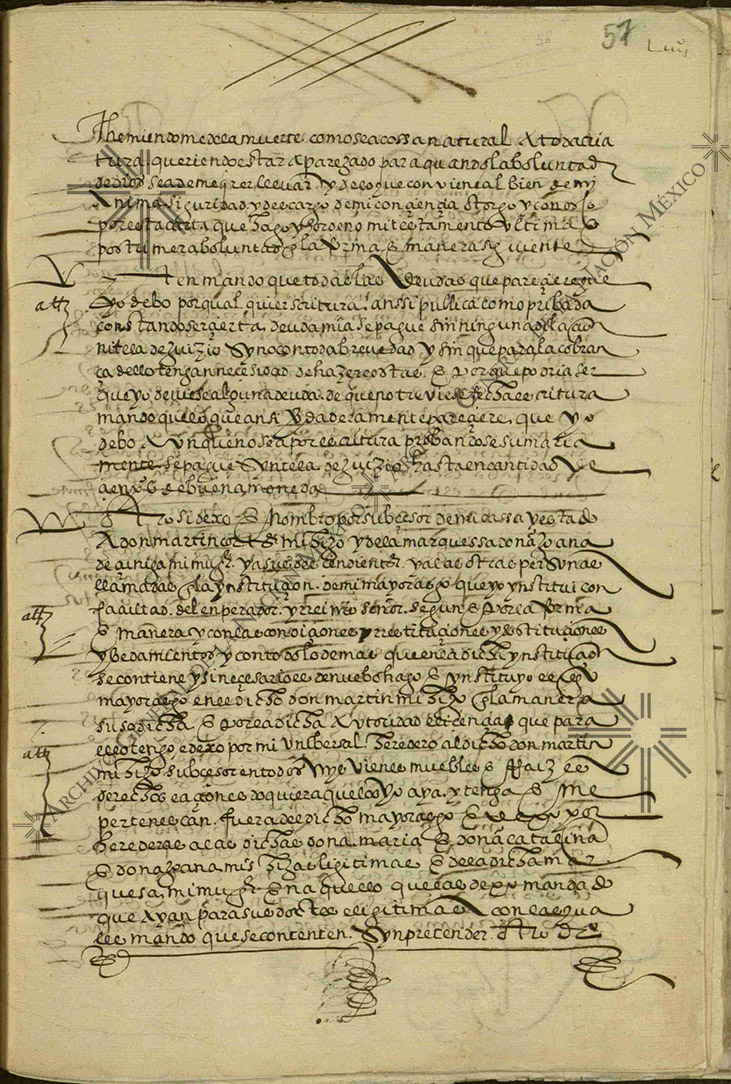 57
Themiendome dela muerte como sea cossa natural A toda cria
tura queriendo estar aparegado para quando la boluntad
de dios sea de me querer llevar y delo que conviene al bien de mi
Anima siguridad y descargo de mi congiengia otorgo y conosco
por esta carta que hago y hordeno mi testamento ultima E
postrimera boluntad en la forma E manera siguiente
Yten mando que todas las deudas que paregiere que
Eyo debo por qual quier scritura anssi publica como pribada
constando ser gierta deuda mia se pague sin ninguna dilagion
ni tela de juizio syno con toda brevedad y sin que para la cobran
ca dello tengan negesidad de hazer costas E porque podria ser
que yo deviese alguna deuda de que no tuviese fecha escritura
mando que lo que ansi verdaderamente paregiere que yo
debo Aunque no sea por escritura probandose sumaria
mente se pague syn tela de juizio hasta en cantidad
de buena moneda
Otro si dexo E nombro por subcesor de mi cassa y estado
A don martin cortes mi hijo y dela marquessa doña juana
de cuñiga mi muger y a sus decendientes y a las otras personas
llamadas en la ynstitugion de mi mayorazgo que yo ynstitui con
facultad del enperador y rrei nuestro señor segun E por la forma
E manera y con las condigiones y rrestitugiones y sostitugiones
y bedamientos y con todo lo demas que en la dicha ynstitugion
se contiene y si negesario es de nuebo hago E ynstituyo el
mayorazgo en el dicho don martin mi hijo en la manera
susodicha E por la dicha Autoridad E ligengia que para
ello tengo E dexo por mi unibersal heredero al dicho don martin
mi hijo subcesor en todos mys vienes muebles E rraizes
derechos E agiones do quiera que los yo aya y tenga E me
pertenescan fuera del dicho mayorazgo E dexo por
herederas a las dichas dona maria E dona catalina
E dona juana mis hijas ligitimas E dela dicha mar
quesa mi muger En aquello que les dexo mandado
que ayan para sus dotes E ligitimas con lo qual
les mando que se contenten syn pretender otro de